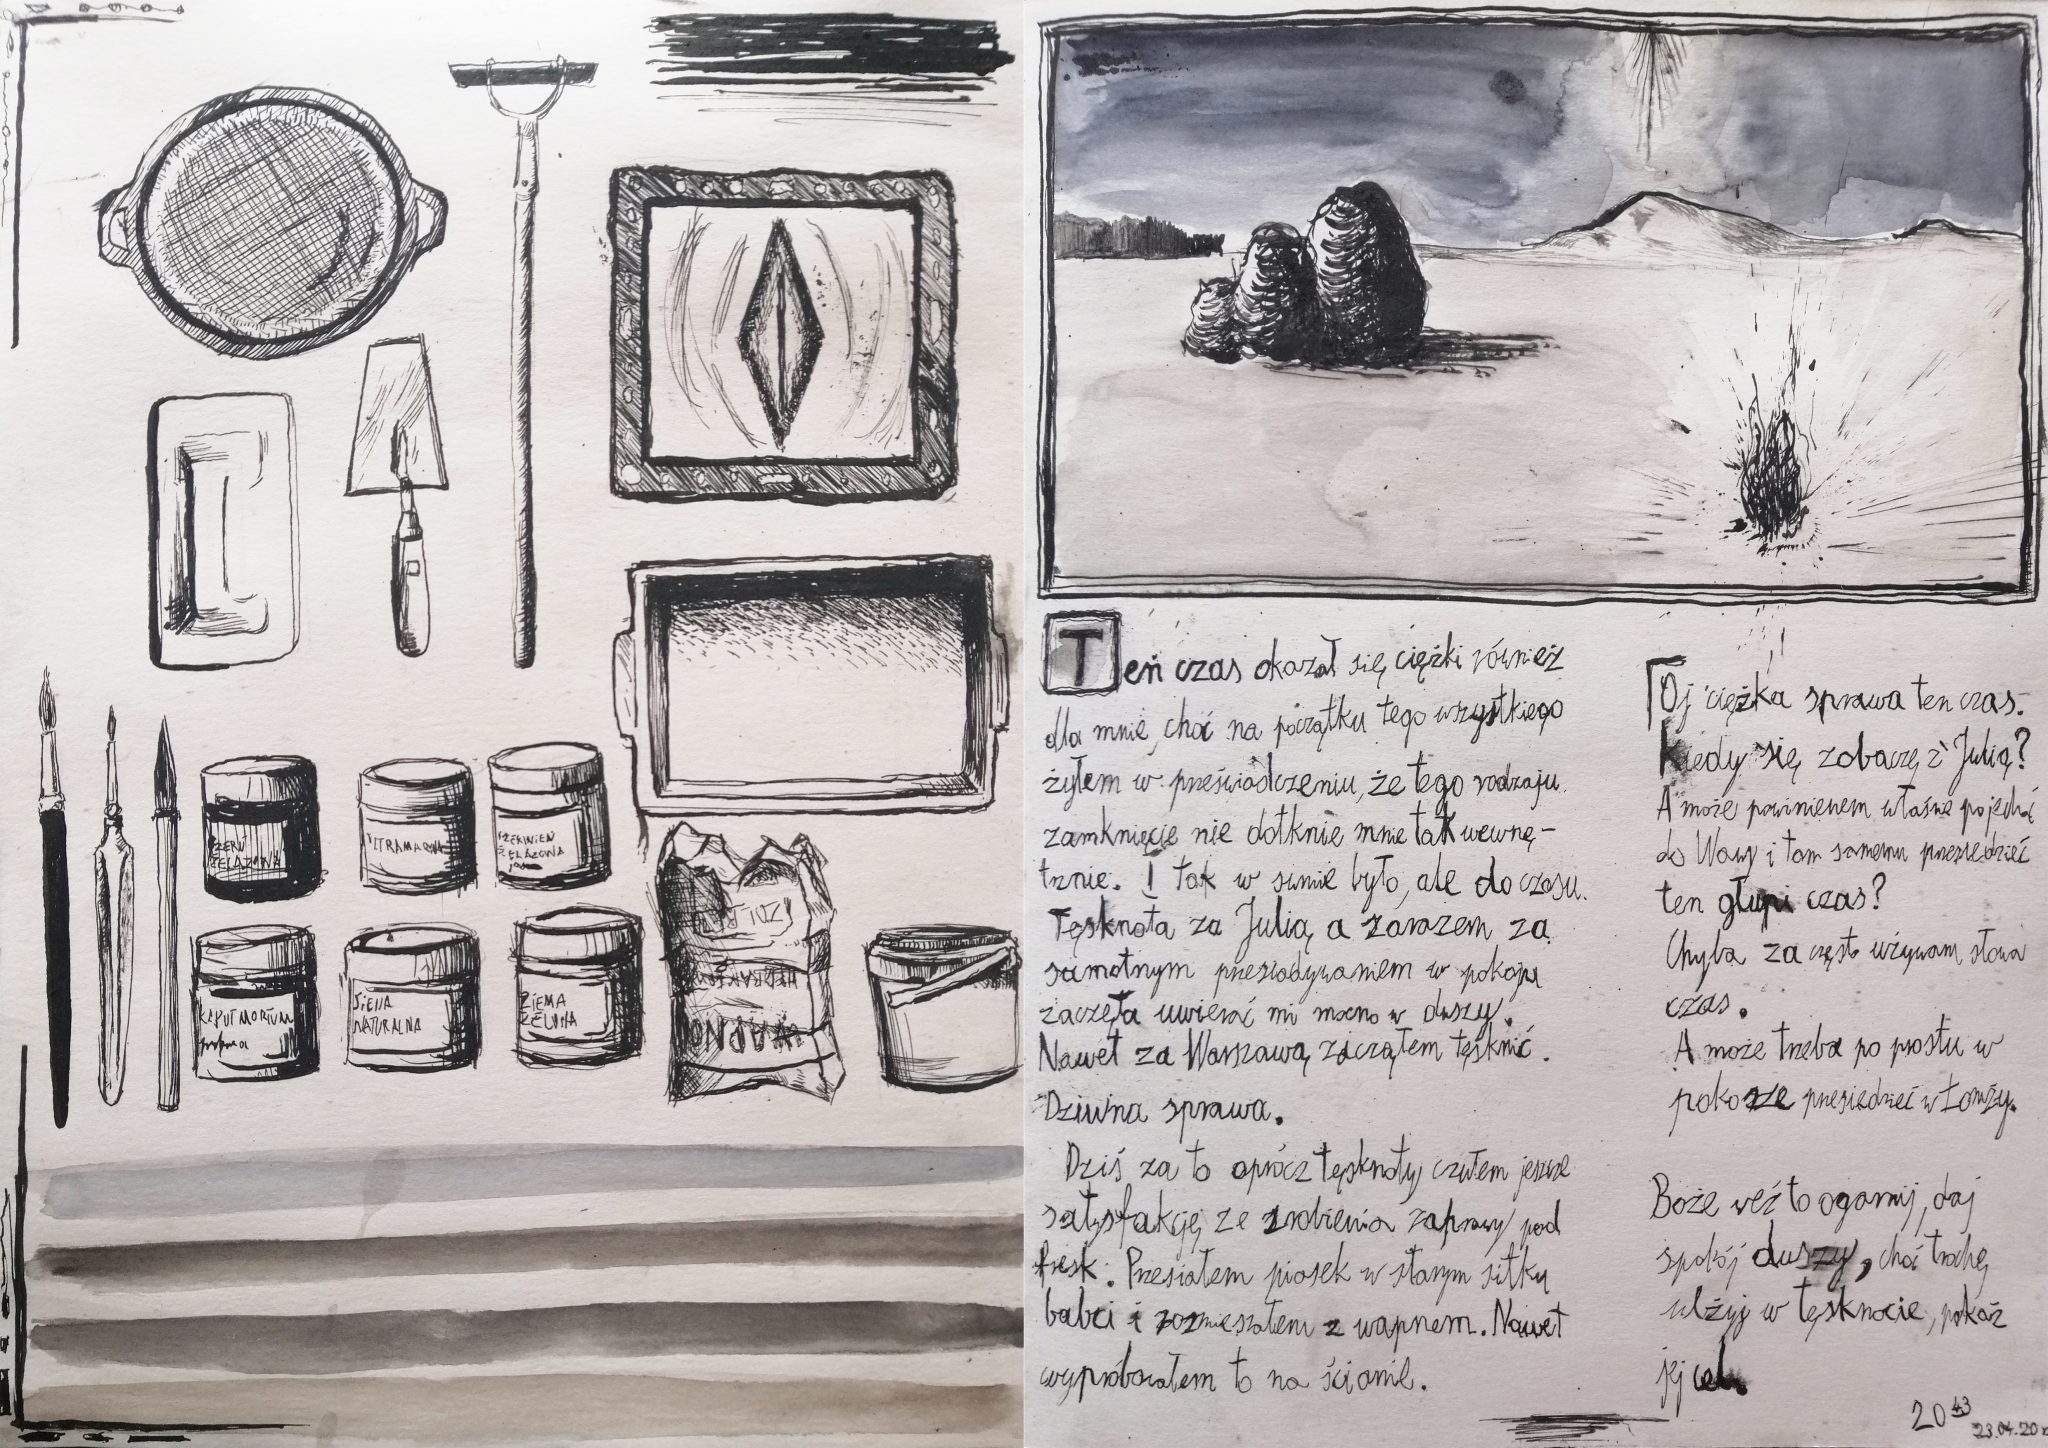 CZERŃ
ŻELAZOWA
ULTRAMARYNA
CZERWIEŃ
ŻELAZOWA
KAPUT MORTUUM
SIENA
NATURALNA
ZIEMA
ZELONA
WAPNO
Teń czas okazał się ciężki również
dla mnie, choć na początku tego wszystkiego
żyłem w przeświadczeniu, że tego rodzaju
zamknięcie nie dotknie mnie tak wewnę-
trznie. I tak w sumie było, ale do czasu.
Tęsknota za Julią, a zarazem za
samotnym przesiadywaniem w pokoju
zaczęła uwierać mi mocno w duszy.
Nawet za Warszawą zacząłem tęsknić.
Dziwna sprawa.
Dziś za to oprócz tęsknoty czułem jeszcze
satysfakcję ze zrobienia zaprawy pod
fresk. Przesiałem piasek w starym sitku
babci i rozmieszałem z wapnem. Nawet
wypróbowałem to na ścianie.
Oj ciężka sprawa ten czas.
Kiedy się zobaczę z Julią?
A może powinienem właśnie pojechać
do Wawy i tam samemu przesiedzieć
ten głupi czas?
Chyba za często używam słowa
czas.
A może trzeba po prostu w
pokorze przesiedzieć w Łomży.
Boże weź to ogarnij, daj
spokój duszy, choć trochę
ulżyj w tęsknocie, pokaż
jej cel.
20 43
23.04.20